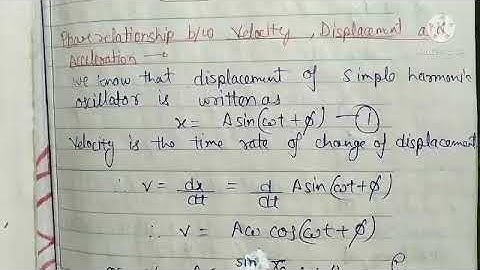 Phase relationship b/w Velocity, Displacement and
Acceleration →
we know that displacement of simple harmonic
oscillator is written as
x = A sin(ωt + ϕ) — ①
Velocity is the time rate of change of displacement
∴ v = dx/dt = d/dt A sin(ωt + ϕ)
∴ v = Aω cos(ωt + ϕ)
sin